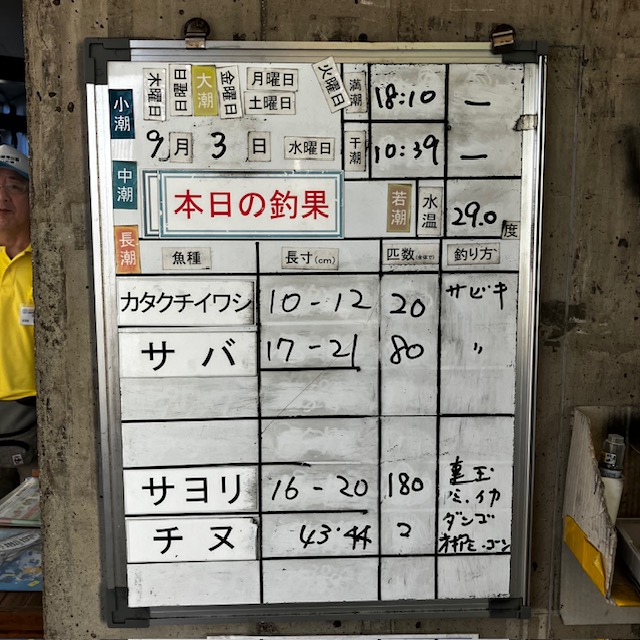 木曜日 日曜日 大潮 金曜日 月曜日 土曜日 火曜日 満潮 18:10 ー
小潮
9月3日 水曜日 干潮 10:39 ー
中潮
本日の釣果 若潮 水温 29.0度
長潮
魚種 長寸(cm) 匹数 釣り方
カタクチイワシ 10-12 20 サビキ
サバ 17-21 80 〃
サヨリ 16-20 180
チヌ 43・44 2
ダンゴ